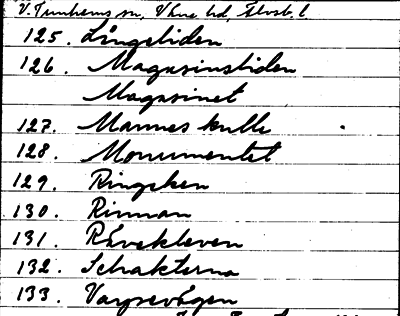 V. Tunhems sn, Väne hd, Älvsb. l.
125. Långeliden
126. Magasinsliden
Magasinet
127. Mannes kulle
128. Monumentet
129. Ringeken
130. Rinnan
131. Rävekleven
132. Schakterna
133. Vargevägen